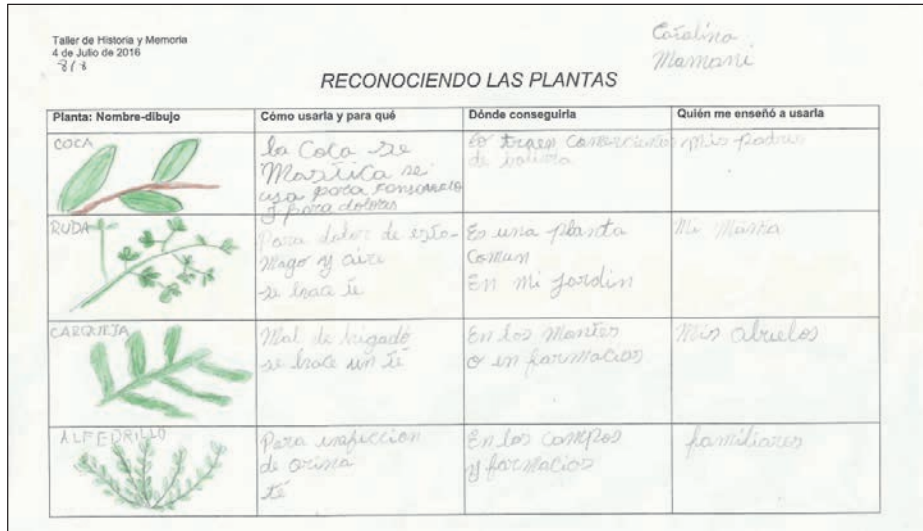 Taller de Historia y Memoria
4 de Julio de 2016
8/8
Carolina
Mamani
RECONOCIENDO LAS PLANTAS
Planta: Nombre-dibujo
Cómo usarla y para qué
Dónde conseguirla
Quién me enseñó a usarla
COCA
la Coca se
Mastica se
usa para
y para dolores
lo traen Comerciantes
de bolivia
mis padres
RUDA
Para dolor de esto-
mago y aire
se hace te
Es una planta
Comun
En mi jardin
Mi Mama
CARQUEJA
Mal de higado
se hace un té
En los Montes
o en farmacias
Mis abuelos
ALFEDRILLO
Para
de orina
té
En los campos
y farmacias
familiares